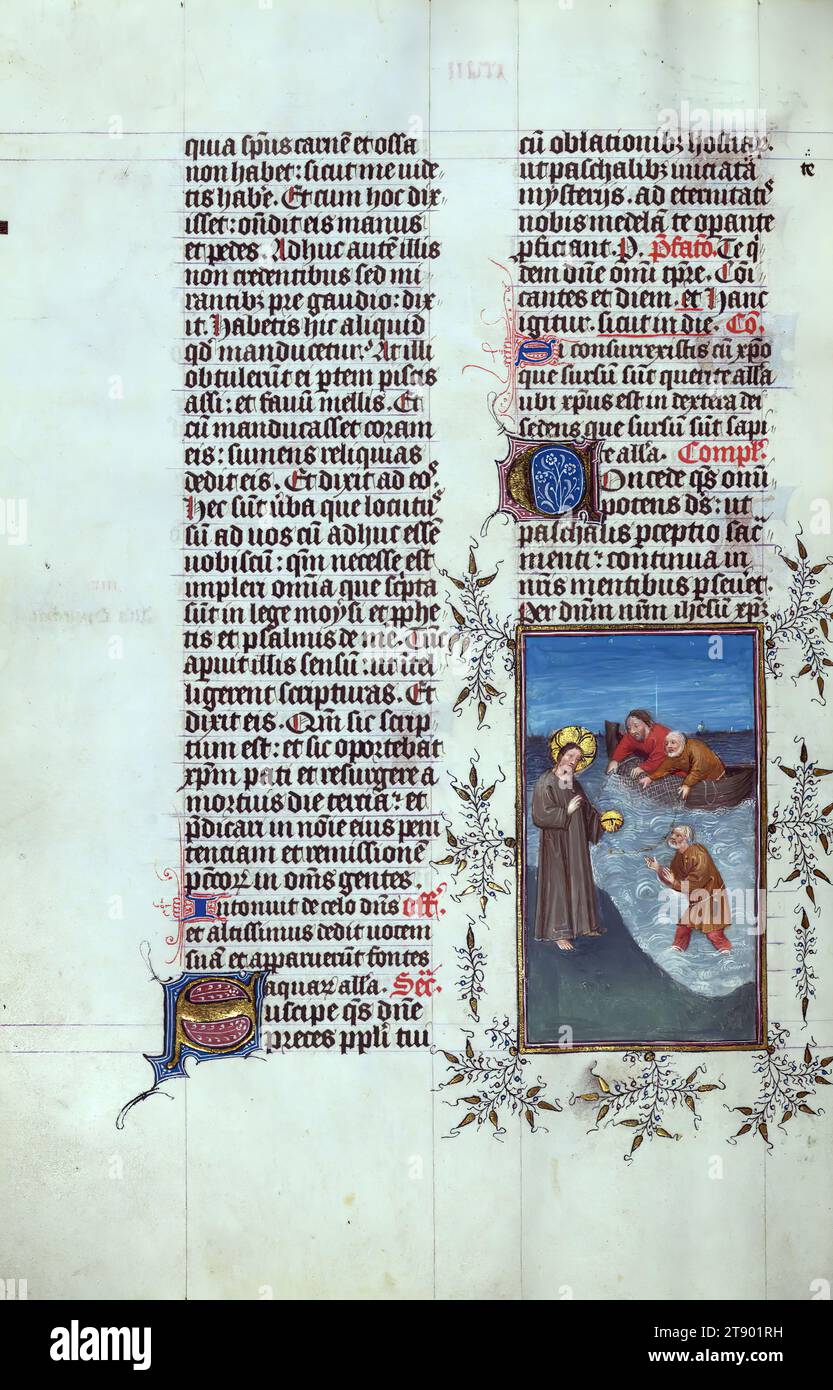 quia sp̄us carnē et ossa
non habet : sicut me uide
tis habē̄. Et cum hoc dix
isset : on̄dit eis manus
et pedes. Adhuc autē illis
non credentibus sed mi
rantibꝫ pre gaudio : dix
it. Habetis hic aliquid
qd̄ manducetur. At illi
obtulerūt ei ꝑtem piscis
assi : et fauū mellis. Et
cū manducasset coram
eis : sumens reliquias
dedit eis. Et dixit ad eoˢ
Hec sūt ūba que locutuˢ
sū ad uos cū adhuc essē
uobiscū : qm̄ necesse est
impleri om̄ia que sc̄pta
sūt in lege moysi et ꝓphe
tis et psalmis de me. Tūc
aperuit illis sensū : ut ītel
ligerent scripturas. Et
dixit eis. Qm̄ sic scrip
tum est : et sic oportebat
xp̄m pati et resurgere a
mortuis die tercia : et
p̄dicari in nōie eius peni
tenciam et remissionē
pc̄cor̄ in om̄s gentes.
Intonuit de celo dn̄s off.
et altissimus dedit uocem
suā et apparuerūt fontes
aquar̄ alla. Sec̄.
Suscipe qs̄ dn̄e
preces pp̄li tui
cū oblationibꝫ hostiar̄.
ut paschalibꝫ iniciata
mysterijs. ad eternitatiˢ
nobis medelā te oꝑante
ꝓficiant. P. P̄fatō. Te q
dem dn̄e om̄i tp̄re. Cōi
cantes et diem. et Hanc
igitur. sicut in die. Cō.
Si consurrexistis cū xp̄o
que sursū sūt querite alla
ubi xp̄us est in dextera dei
sedens que sursū sūt sapi
te alla. Compl̄.
Concede qs̄ om̄i
potens ds̄ : ut
paschalis ꝑceptio sac̄
menti : continua in
nr̄is mentibus ꝑseuet̄.
Per dn̄m nr̄m ihesū xp̄
te
alamy
Image ID: 2T901RH
www.alamy.com